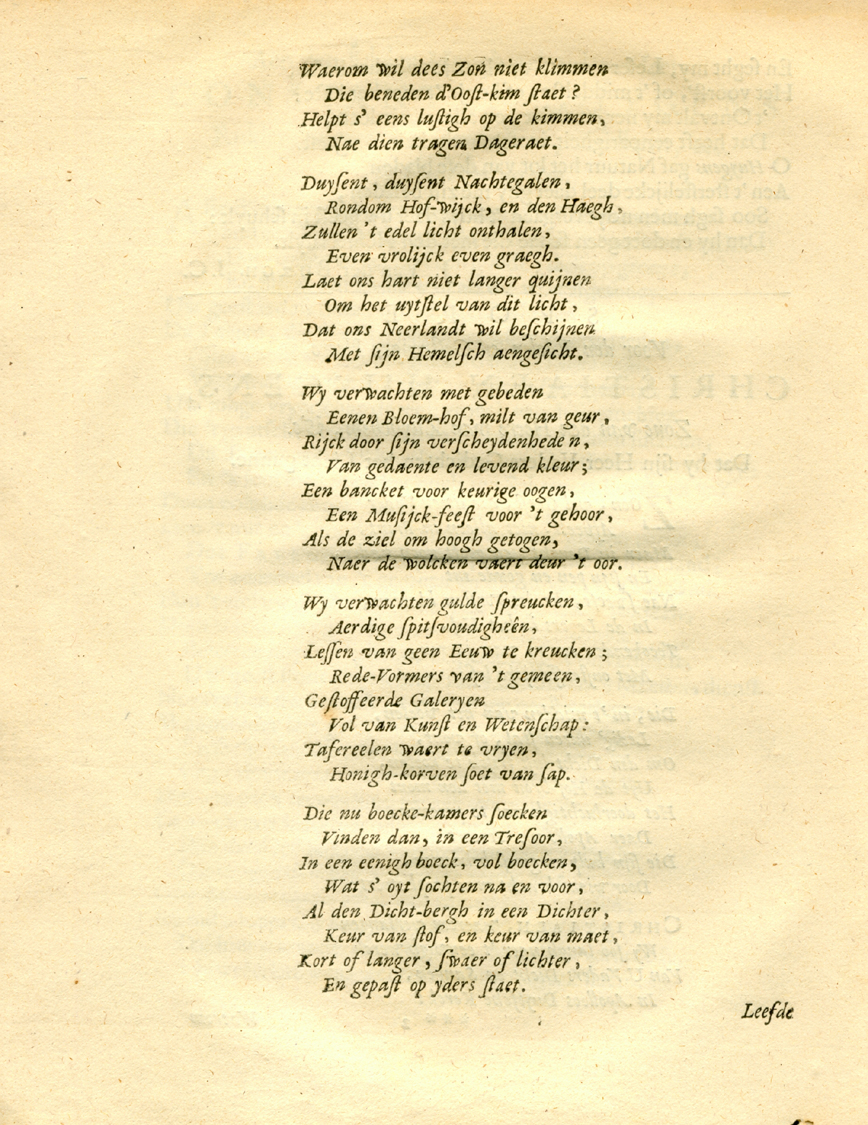 Waerom wil dees Zon niet klimmen
Die beneden d'Ooſt-kim ſtaet ?
Helpt s' eens luſtigh op de kimmen,
Nae dien tragen Dageraet.
Duyſent, duyſent Nachtegalen,
Rondom Hof-wijck, en den Haegh,
Zullen 't edel licht onthalen,
Even vrolijck even graegh.
Laet ons hart niet langer quijnen
Om het uytſtel van dit licht,
Dat ons Neerlandt wil beſchijnen
Met ſijn Hemelſch aengeſicht.
Wy verwachten met gebeden
Eenen Bloem-hof, milt van geur,
Rijck door ſijn verſcheydenheden,
Van gedaente en levend kleur;
Een bancket voor keurige oogen,
Een Muſijck-feeſt voor 't gehoor,
Als de ziel om hoogh getogen,
Naer de wolcken vaert deur 't oor.
Wy verwachten gulde ſpreucken,
Aerdige ſpitſvoudigheên,
Leſſen van geen Eeuw te kreucken;
Rede-Vormers van 't gemeen,
Geſtoffeerde Galeryen
Vol van Kunſt en Wetenſchap:
Tafereelen waert te vryen,
Honigh-korven ſoet van ſap.
Die nu boecke-kamers ſoecken
Vinden dan, in een Treſoor,
In een eenigh boeck, vol boecken,
Wat s' oyt ſochten na en voor,
Al den Dicht-bergh in een Dichter,
Keur van ſtof, en keur van maet,
Kort of langer, ſwaer of lichter,
En gepaſt op yders ſtaet.
Leefde